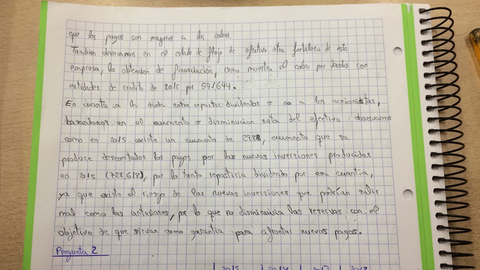 que los pagos son mayores a los cobros.
También observamos en el estado de flujo de efectivo otra fortaleza de esta
empresa, la obtención de financiación, como muestra el cobro por deudas con
entidades de crédito de 2015 por 591,644.
En cuanto a la duda entre repartir dividendos o no a los accionistas,
basándonos en el aumento o disminución neta del efectivo observamos
como en 2015 existe un aumento de, aumento que se
produce descontados los pagos por las nuevas inversiones producidas
en 2015, por lo tanto repartiría dividendo por esa cuantía,
ya que existe el riesgo de las nuevas inversiones que podrían salir
mal como las anteriores, por lo que no disminuiría las reservas con el
objetivo de que sirvan como garantía para afrontar nuevos pagos.
Pregunta 2